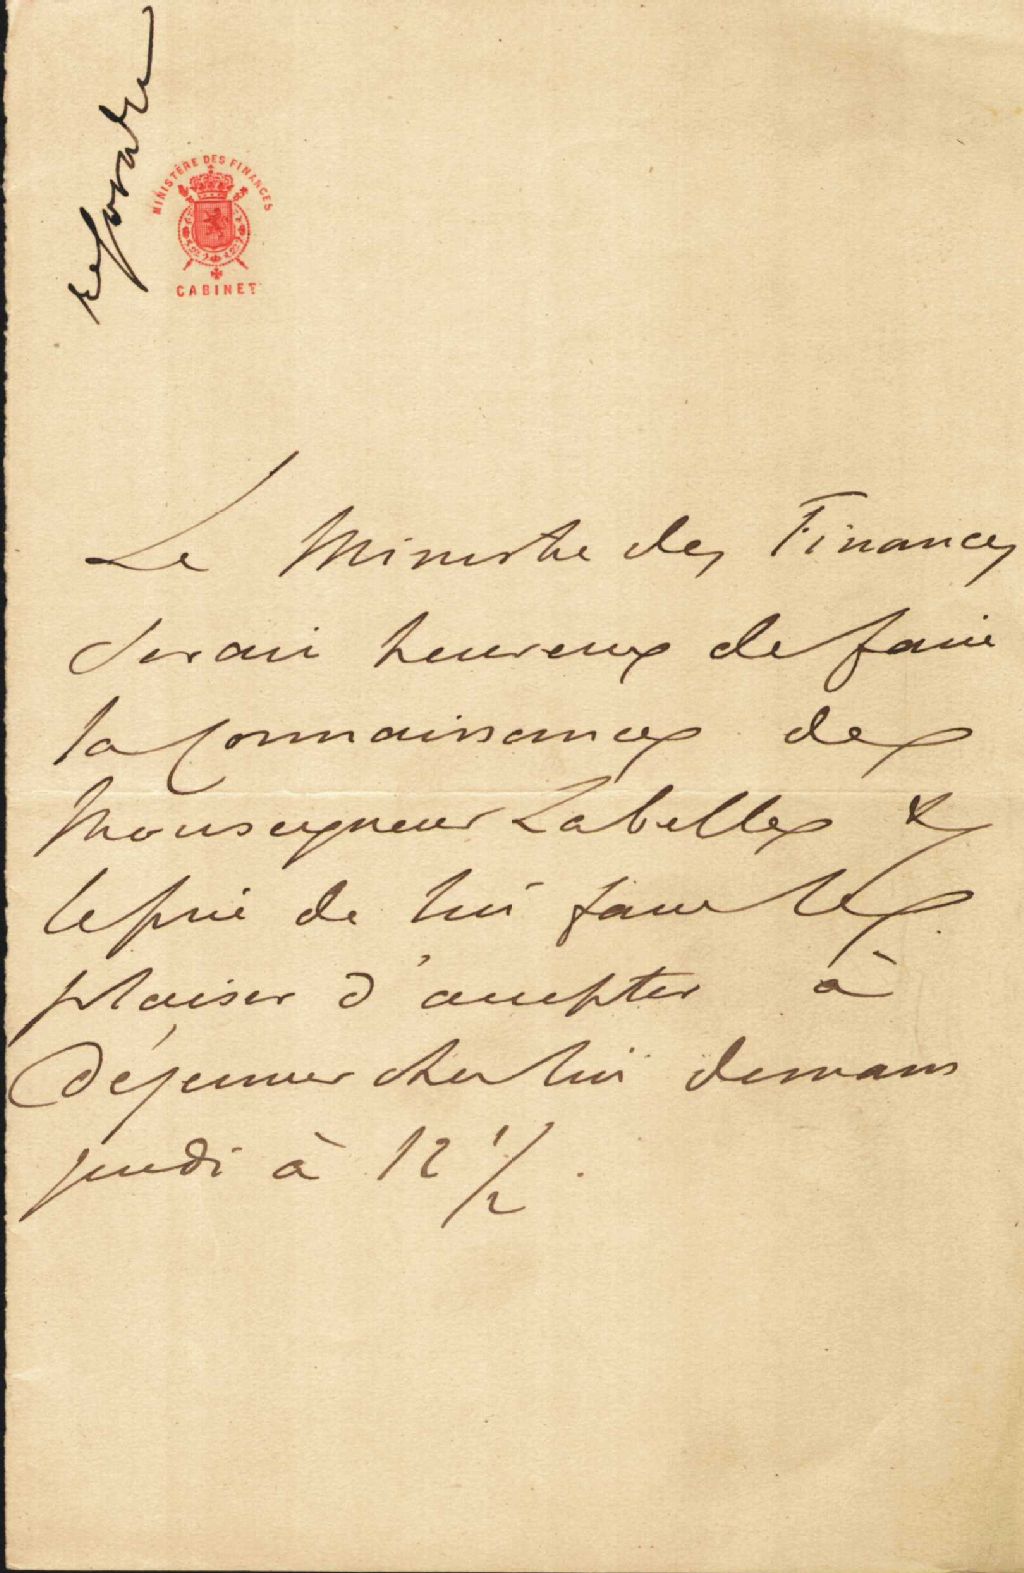 répondre
MINISTÈRE DES FINANCES
CABINET
Le Ministre des Finances
serait heureux de faire
la connaissance de
Monseigneur Labelle &
le prie de lui faire le
plaisir d'accepter à
déjeuner chez lui demain
jeudi à 12 1/2.